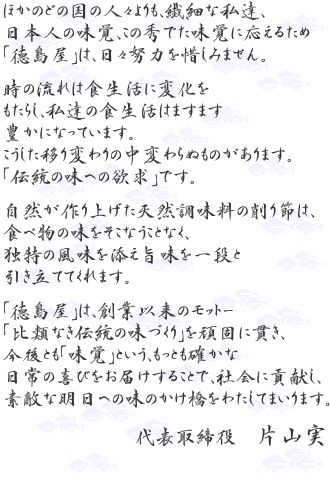 ほかのどの国の人々よりも、繊細な私達、
日本人の味覚、この秀でた味覚に応えるため
「徳島屋」は、日々努力を惜しみません。
時の流れは食生活に変化を
もたらし、私達の食生活はますます
豊かになっています。
こうした移り変わりの中変わらぬものがあります。
「伝統の味への欲求」です。
自然が作り上げた天然調味料の削り節は、
食べ物の味をそこなうことなく、
独特の風味を添え旨味を一段と
引き立ててくれます。
「徳島屋」は、創業以来のモットー
「比類なき伝統の味づくり」を頑固に貫き、
今後とも「味覚」という、もっとも確かな
日常の喜びをお届けすることで、社会に貢献し、
素敵な明日への味のかけ橋をわたしてまいります。
代表取締役 片山実